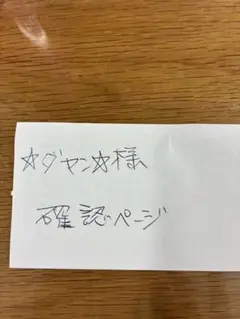 ☆ダヤン☆様
確認ページ